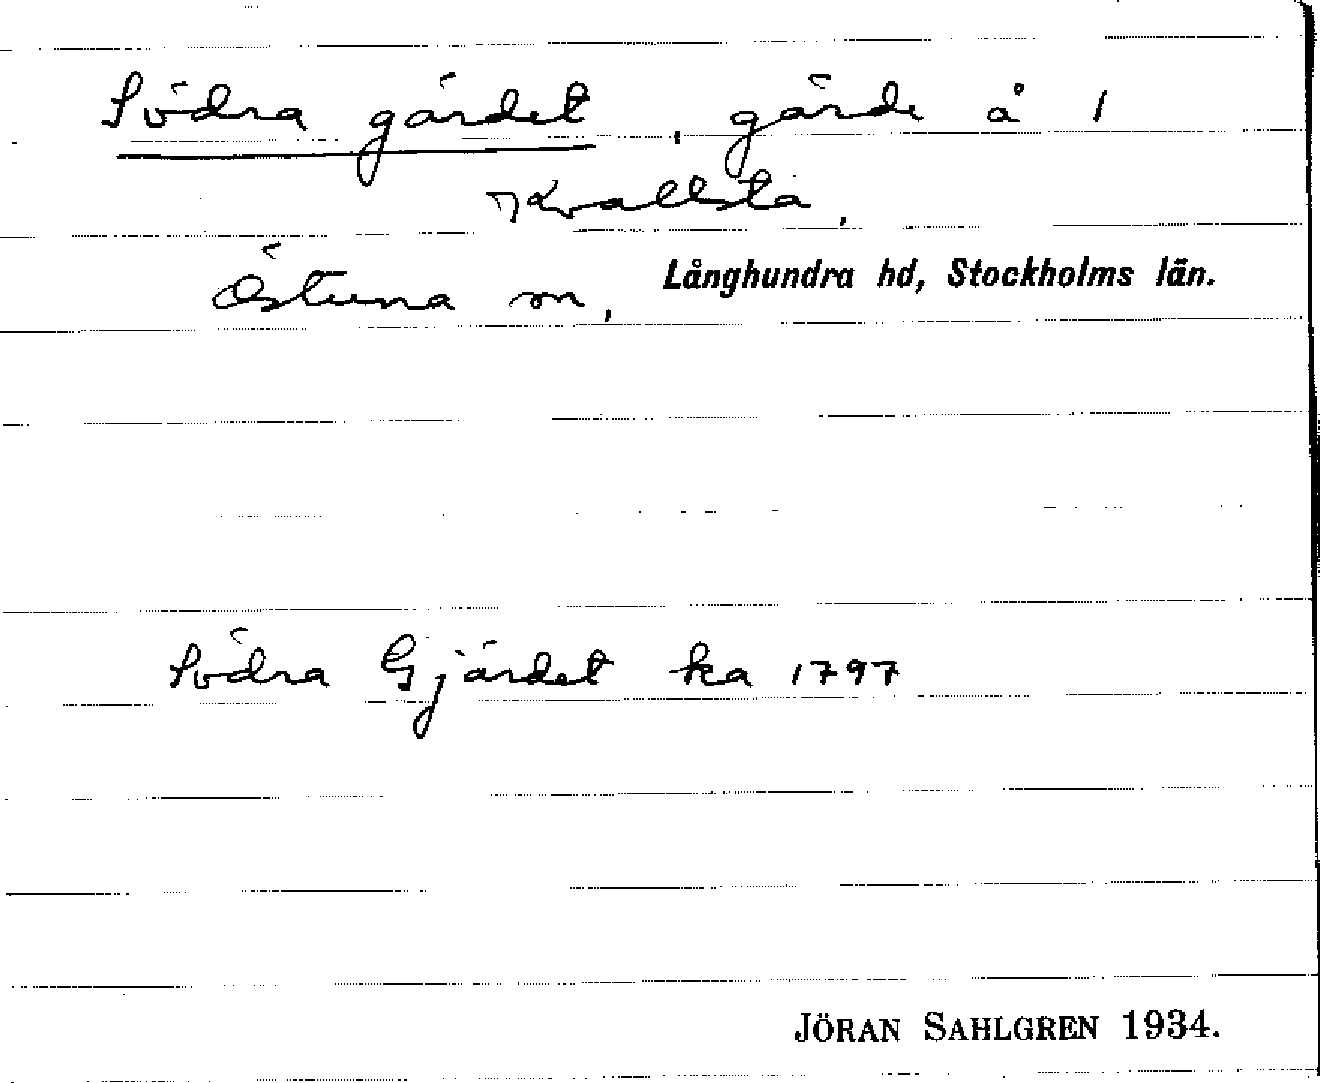 Södra gärdet, gärde å 1
Kvallsta,
Östuna sn, Långhundra hd, Stockholms län.
Södra Gjärdet ka 1797
JÖRAN SAHLGREN 1934.